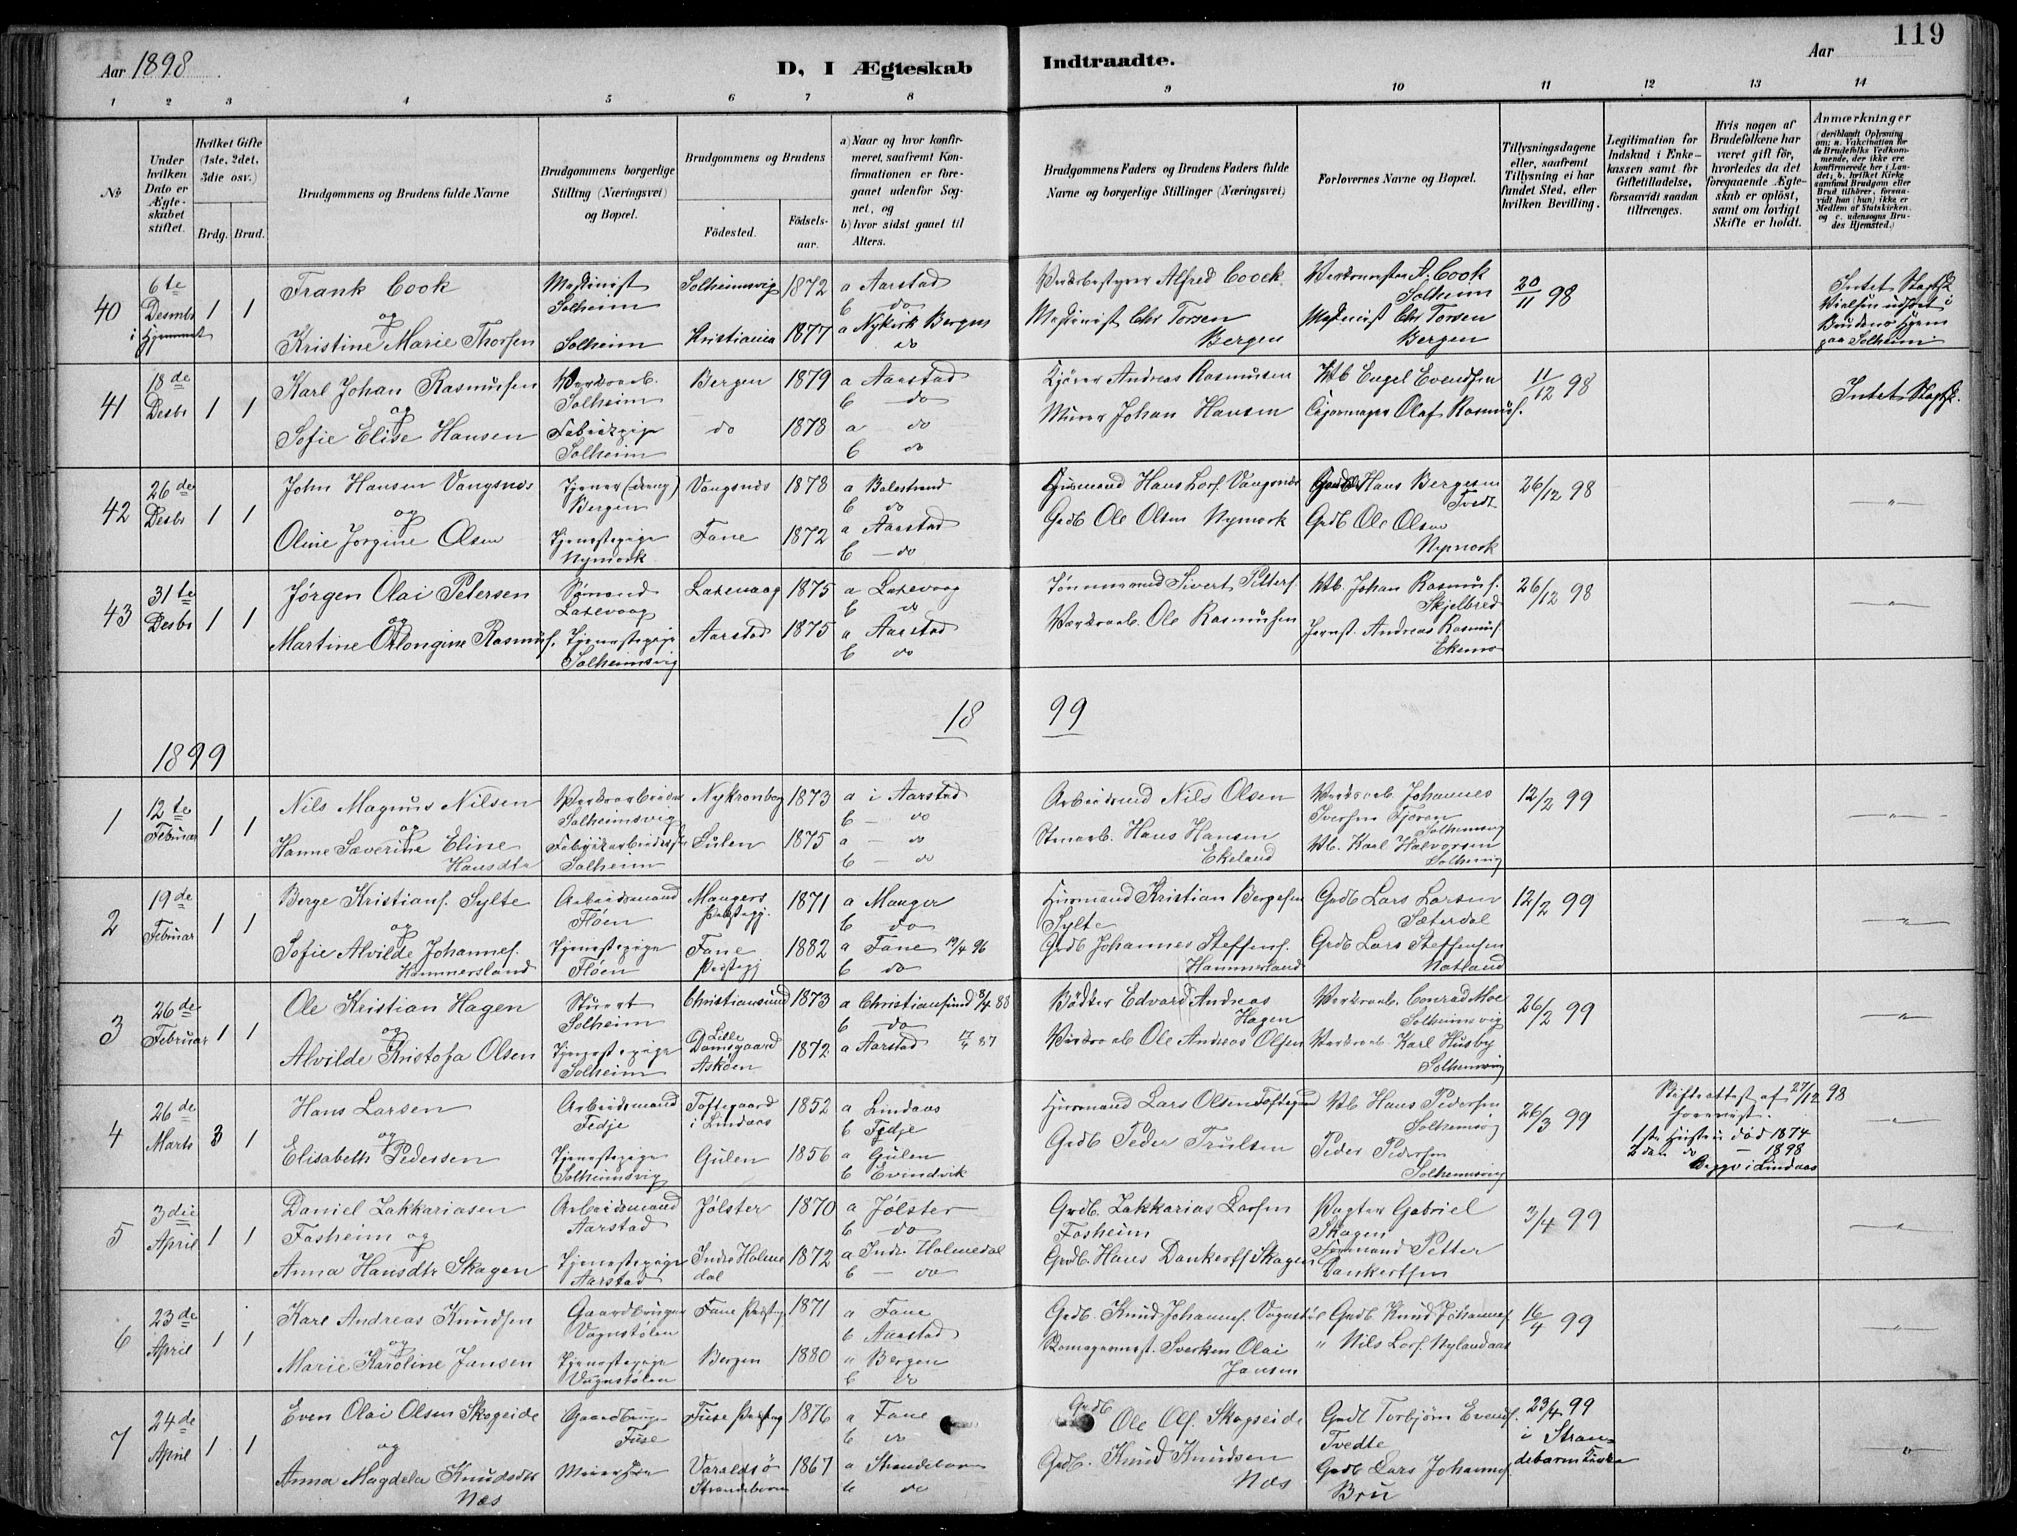 Aar 1898.
D, I Ægteskab
Indtraadte.
Aar
119
1 2 3 4 5 6 7 8 9 10 11 12 13 14
No
Under hvilken Dato er Ægteskabet stiftet.
Hvilket Gifte (1ste, 2det, 3die osv.)
Brdg. Brud.
Brudgommens og Brudens fulde Navne
Brudgommens borgerlige Stilling (Næringsvei) og Bopæl.
Brudgommens og Brudens
Fødested.
Fødselsaar.
a) Naar og hvor konfirmeret, saafremt Konfirmationen er foregaaet udenfor Sognet, og
b) hvor sidst gaaet til Alters.
Brudgommens Faders og Brudens Faders fulde Navne og borgerlige Stillinger (Næringsvei)
Forlovernes Navne og Bopæl.
Tillysningsdagene eller, saafremt Tillysning ei har fundet Sted, efter hvilken Bevilling.
Legitimation for Indskud i Enkekassen samt for Giftetilladelse, forsaavidt saadan tiltrænges.
Hvis nogen af Brudefolkene har været gift før, hvorledes da det foregaaende Ægteskab er opløst, samt om lovligt Skifte er holdt.
Anmærkninger
(deriblandt Oplysning om: a. Vakcination for de Brudefolks Vedkommende, der ikke ere konfirmerede her i Landet; b. hvilket Kirkesamfund Brudgom eller Brud tilhører, forsaavidt han (hun) ikke er Medlem af Statskirken, og c. udensogns Brudes Hjemsted.)
40
6te Desmb i Hjemmet
1 1
Frank Cook
og
Kristine Marie Thorsen
Maskinist Solheim
Solheim
Solheimsvig 1872
Kristiania 1877
a Aarstad
b do
a Nykirk Bergen
do
Værkbestyrer Alfred Coock
Maskinist Chr Torsen Bergen
Verksmester A. Cook Solheim
Maskinist Chr Torsen Bergen
20/11 98
Intet Slagtsk.
Vielsen udført i Brudens Hjem paa Solheim
41
18de Desbr
1 1
Karl Johan Rasmusen
og
Sofie Elise Hansen
Verksarb. Solheim
Fabrikpige Solheim
Bergen 1879
do 1878
a Aarstad
b do
a do
b do
Kjører Andreas Rasmusen
Murer Johan Hansen
Vb Engel Evendsen
Cigarmager Olaf Rasmus.
11/12 98
Intet Slagtsk.
42
26de Desbr
1 1
John Hansen Vangsnes
og
Oline Jorgine Olsen
Tjener (dreng) Bergen
Tjenestepige Nymark
Vangsnes 1878
Fane 1872
a Balestrand
b do
a Aarstad
b do
Husmand Hans Lars. Vangsnes
Grdb Ole Olsen Nymark
Grdb Hans Bergesen Tvedt
Grdb Ole Olsen Nymark
26/12 98
"
43
31te Desbr
1 1
Jørgen Olai Petersen
og
Martine Olongine Rasmus.
Sømand Laxevaag
Tjenestepige Solheimsvig
Laxevaag 1875
Aarstad 1875
a Laxevaag
b do
a Aarstad
b do
Tømmermand Sivert Petters.
Værksarb. Ole Rasmusen
Vb. Johan Rasmus. Skjelbred
Jernst. Andreas Rasmus. Ekemo
26/12 98
"
18 99
1899
1
12te Februar
1 1
Nils Magnus Nilsen
og
Hanne Severine Eline Hansdtr
Verksarbeider Solheimsvig
Fabrikarbeiderske Solheim
Nykronborg 1873
Sulen 1875
a i Aarstad
b do
a do
b do
Arbeidsmd Nils Olsen
Stenarb. Hans Hansen Ekeland
Verksarb. Johannes Iversen Fjøren Solhemsvig
Vb. Karl Halvorsen Solhemsvig
12/2 99
"
2
19de Februar
1 1
Berge Kristians. Sylte
og
Sofie Alvilde Johannes. Hammersland
Arbeidsmand Fløen
Tjenestepige Fløen
Mangers Præstegj. 1871
Fane Præstegj 1882
a Manger
b do
a Fane 19/4 96
b do
Husmand Kristian Bergesen Sylte
Grdb Johannes Steffens. Hammerland
Grdb Lars Larsen Sæterdal
Grdb Lars Steffensen Natland
12/2 99
"
3
26de Februar
1 1
Ole Kristian Hagen
og
Alvilde Kristofa Olsen
Stuert Solheim
Tjenestepige Solheim
Christiansund 1873
Lille Damsgaard Askøen 1872
a Christiansund 8/4 88
b do
a Aarstad 17/4 87
Bødker Edvard Andreas Hagen
Værksarb Ole Andreas Olsen
Verksarb. Conrad Moe Solheimsvig
Verksarb. Karl Husby Solhemsvig
26/2 99
"
4
26de Marts
3 1
Hans Larsen
og
Elisabeth Pedersen
Arbeidsmand Fedje
Tjenestepige Solheimsvig
Toftegaard i Lindaas 1852
Gulen 1856
a Lindaas
b Fedje
a Gulen
b Evindvik
Husmand Lars Olsen Toftegaard
Grdb Peder Trulsen
Vb Hans Pedersen Solhemsvig
Peder Pedersen Solhemsvig
26/3 99
Skifteattest af 27/12 98 forevist.
1ste Hustru død 1874
2den do — 1898
Begge i Lindaas
"
5
3die April
1 1
Daniel Zakkariasen Fosheim og
Anna Hansdtr Skagen
Arbeidsmand Aarstad
Tjenestepige Aarstad
Jølster 1870
Indre Holmedal 1872
a Jølster
b do
a Indr. Holmedal
b do
Grdb. Zakkarias Larsen Fosheim
Grdb. Hans Dankertsen Skagen
Pagter Gabriel Skagen
Formand Petter Dankertsen
3/4 99
"
6
23de April
1 1
Karl Andreas Knudsen
og
Marie Karoline Jansen
Gaardbruger Vognstølen
Tjenestepige Vognstølen
Fane Præsteg. 1871
Bergen 1880
a Fane
b Aarstad
" Bergen
b do
Grdb. Knud Johannes. Vognstøl
Sverken Olai Jansen
Grdb. Knud Johannes.
" Nils Lars. Nylandaas
16/4 99
"
7
24de April
1 1
Even Olai Olsen Skogseide
og
Anna Magdela Knudsdtr Næs
Gaardbruger Fuse
Meierske
Fuse Præsteg 1876
Varaldsø Strandebarm 1867
a Fane
b do
a Strandebarm
b do
Grdb Ole Ols. Skogseide
Grdb. Knud Knudsen Næs
Grdb Torbjørn Evends. Tvedte
Grdb Lars Johannes. Bru
23/4 99
i Strandebarm Kirke
"